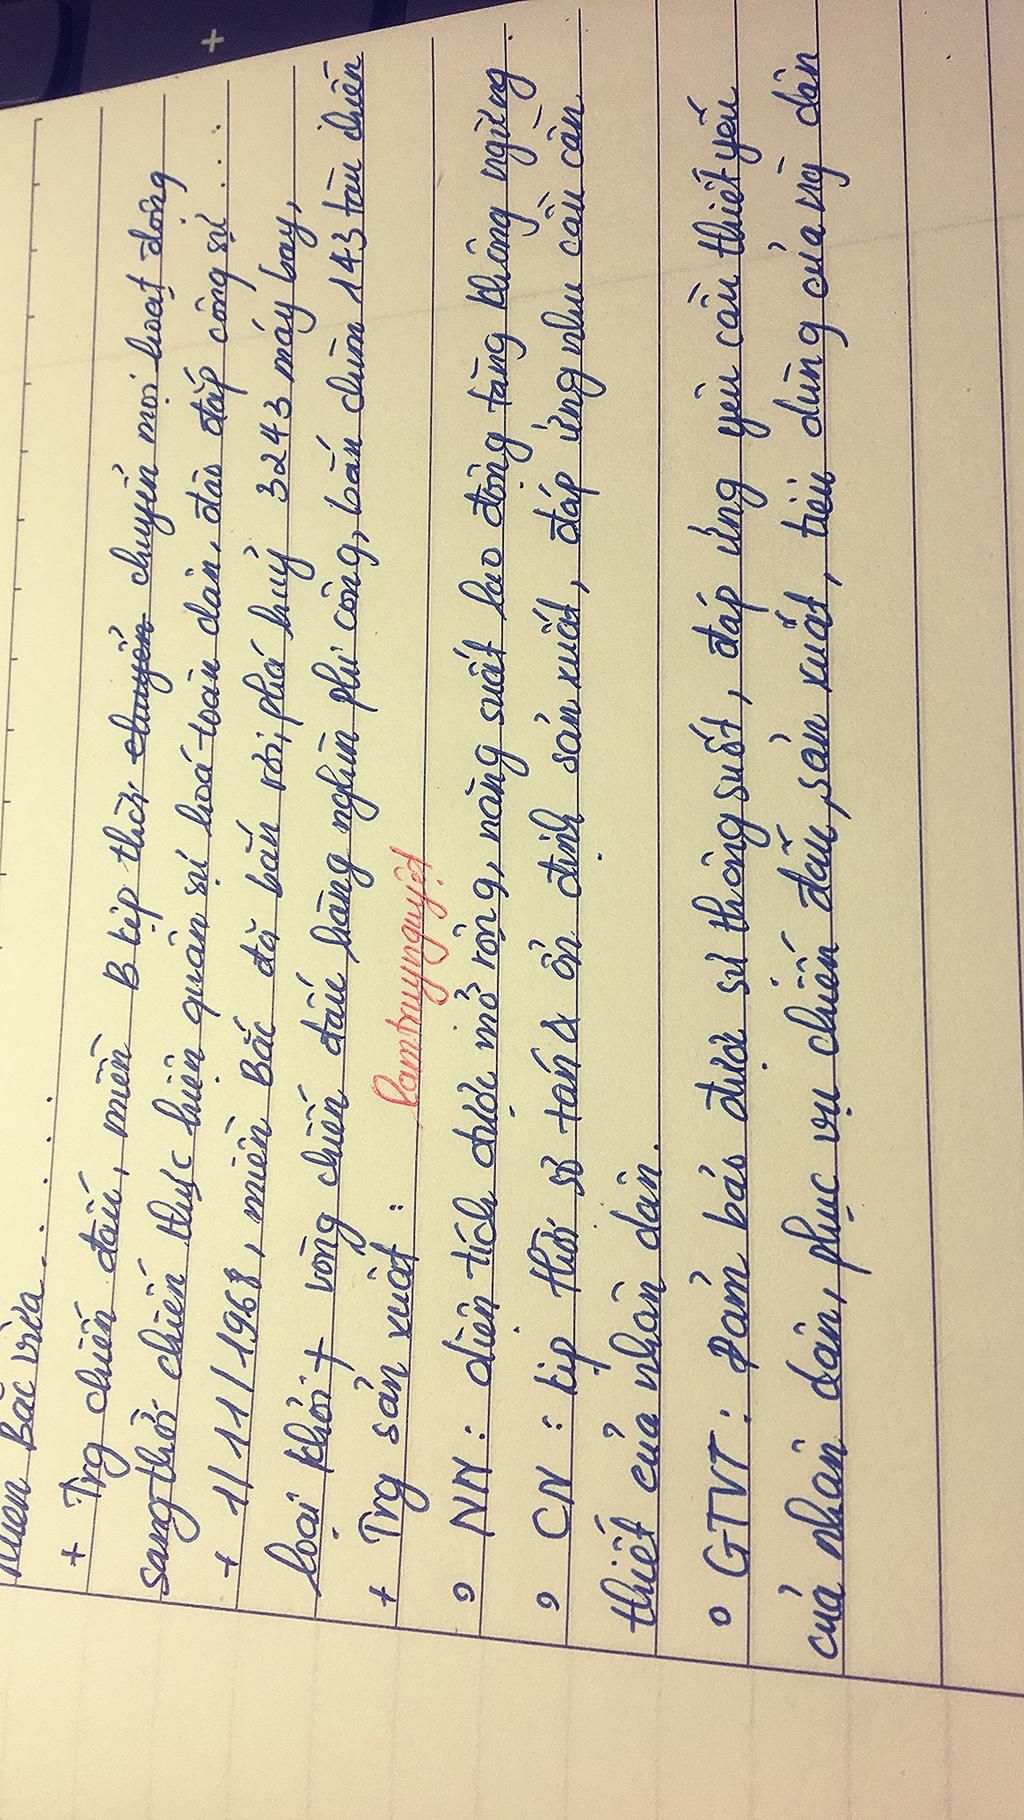 miền Bắc vừa . . . . . . .
+ Trg chiến đấu, miền B kịp thời chuyển mọi hoạt động
sang thời chiến thực hiện quân sự hoá toàn dân, đào đắp công sự . . .
+ 1/11/1968, miền Bắc đã bắn rơi, phá huỷ 3243 máy bay,
loại khỏi + vòng chiến đấu hàng nghìn phi công, bắn chìm 143 tàu chiến
+ Trg sản xuất : lamtruynguyet
NN : diện tích được mở rộng, năng suất lao động tăng không ngừng
CN : kịp thời sơ tán & ổn định sản xuất, đáp ứng nhu cầu cần
thiết của nhân dân.
GTVT : Đảm bảo được sự thông suốt, đáp ứng yêu cầu thiết yếu
của nhân dân, phục vụ chiến đấu, sản xuất, tiêu dùng của ng dân